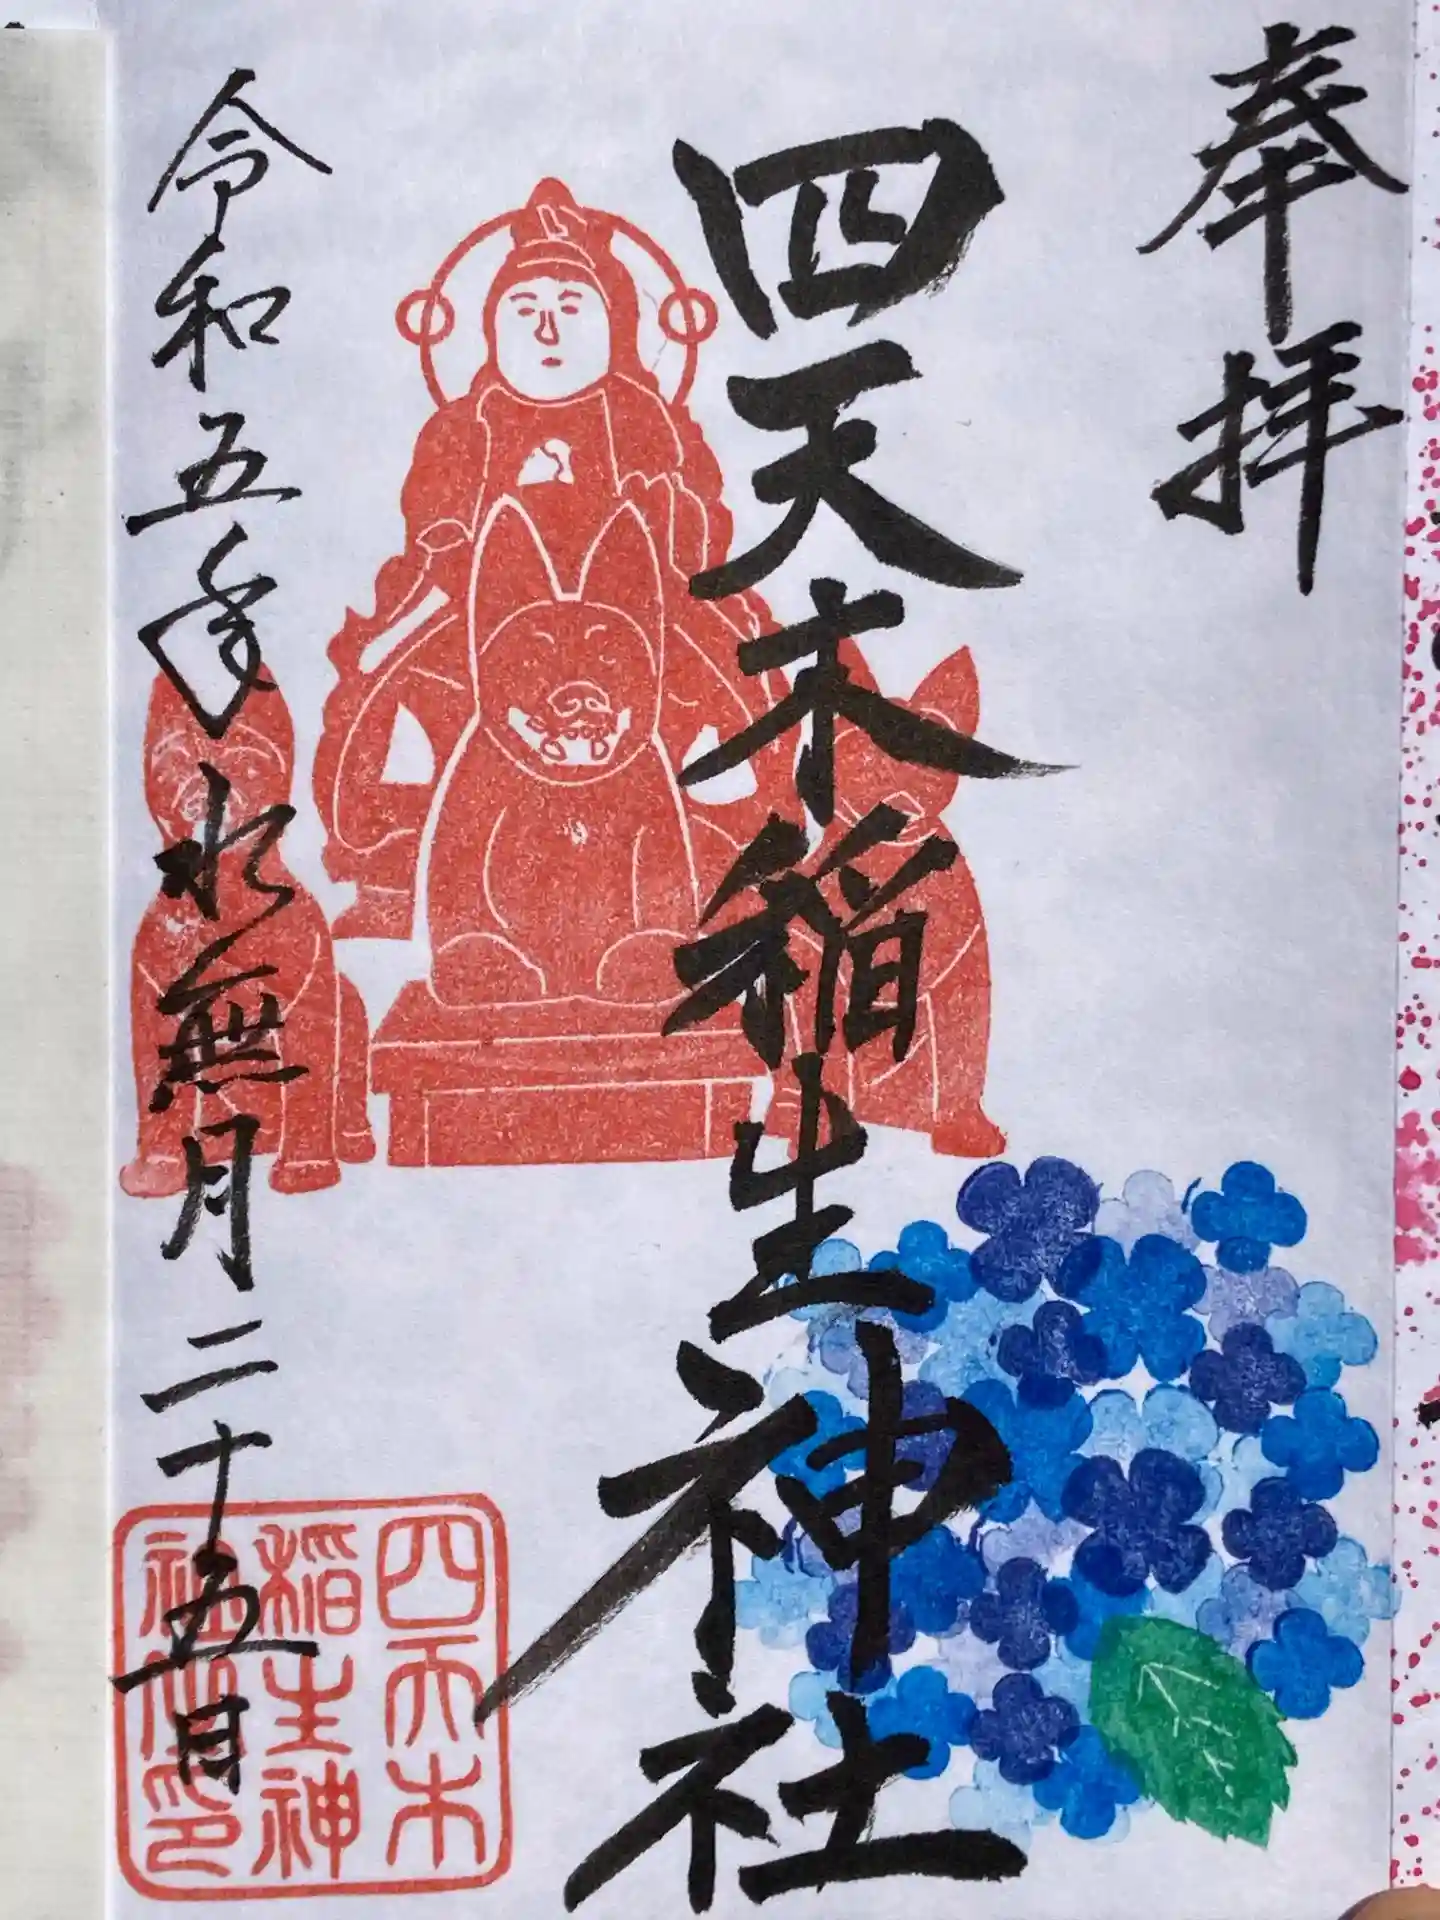 奉拝
四天木稲生神社
令和五年水無月二十五日
四天木
稲生神
社
印